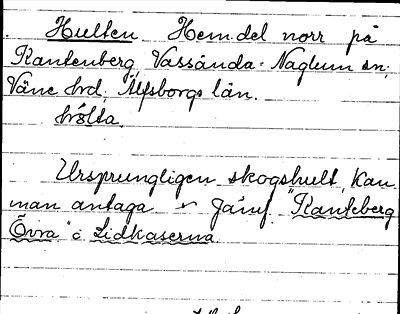 Hulten Hem.del norr på
Rantenberg, Vassända-Naglum sn,
Väne hrd, Älvsborgs län.
Ursprungligen skogshult, kan
man antaga. Jämf. "Ranteberg
Övra" o. Lidkaserna